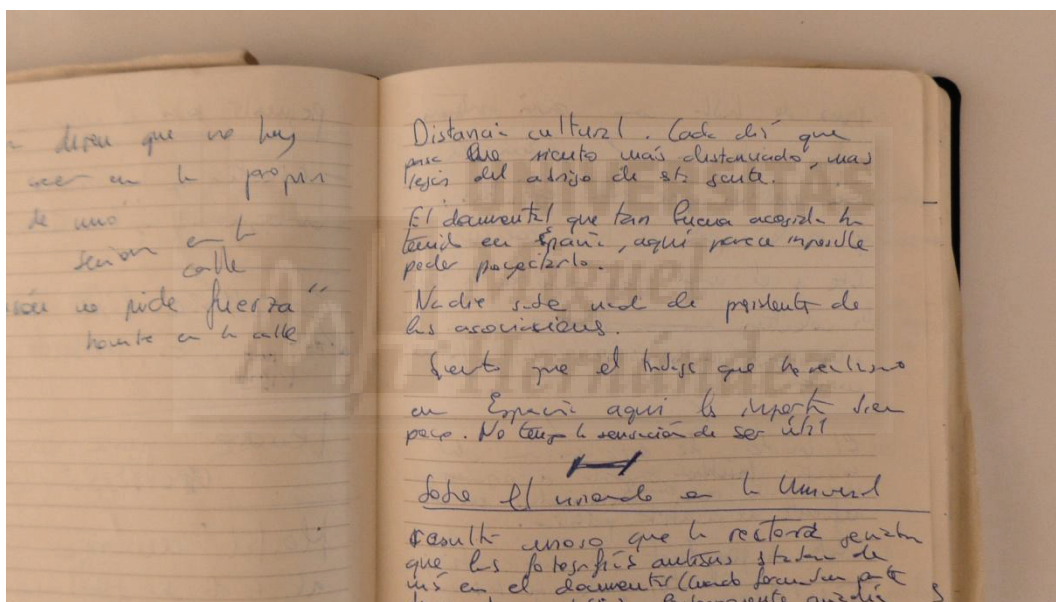 diren que no hay
en la propia
de uno
en la
calle
no pide fuerza"
en la calle
Distancia cultural. Cada día que
pasa me siento más distanciado, mas
lejos del abrigo de sta gente.
El documental que tan buena acogida ha
tenido en España, aquí parece imposible
poder proyectarlo.
Nadie sabe nada de presidente de
las asociaciones.
Siento que el trabajo que he realizado
en España aquí les importa bien
poco. No tengo la sensación de ser útil
Sobre el en la Universal
resulta curioso que la rectora
que las fotografías staban de
más en el documental (cuando
UNIVERSITAS
Miguel
Hernández